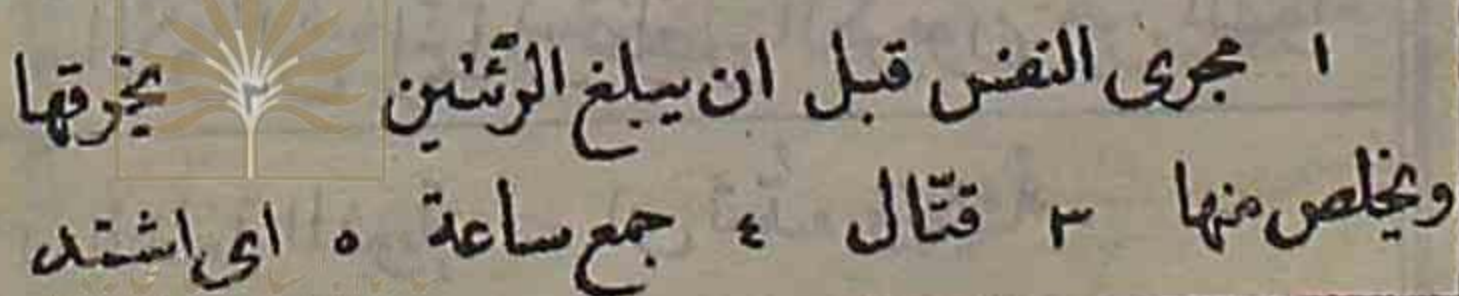 ١ مجرى النفس قبل ان يبلغ الرئتين ٢ يخرقها
ويخلص منها ٣ قتّال ٤ جمع ساعة ٥ اى اشتد